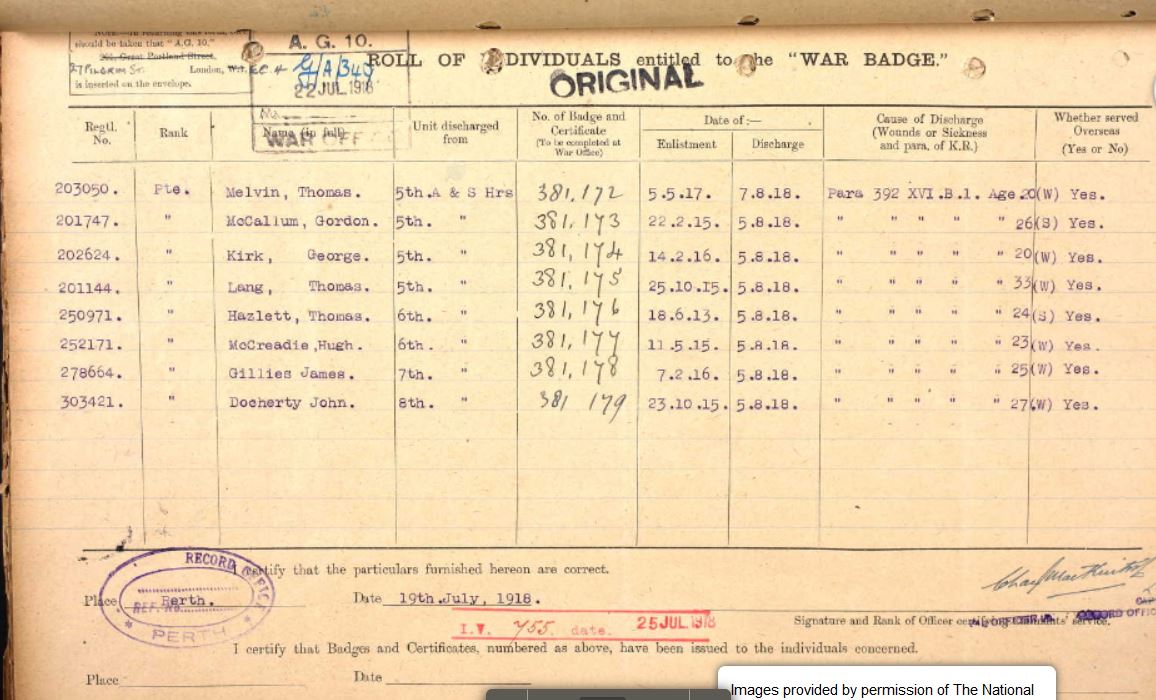 NOTE.—In returning this form,
should be taken that "A.G. 10."
Great Portland Street,
27 PILGRIM ST. London, W. E.C 4
is inserted on the envelope.
A. G. 10.
22 JUL 1918
No.
WAR OFF
ROLL OF INDIVIDUALS entitled to the "WAR BADGE."
ORIGINAL
Regtl. No. Rank Name (in full) Unit discharged from No. of Badge and Certificate (To be completed at War Office) Date of:— Enlistment Discharge Cause of Discharge (Wounds or Sickness and para. of K.R.) Whether served Overseas (Yes or No)
203050. Pte. Melvin, Thomas. 5th.A & S Hrs 381,172 5.5.17. 7.8.18. Para 392 XVI.B.1. Age 20(W) Yes.
201747. " McCallum, Gordon. 5th. " 381,173 22.2.15. 5.8.18. " " " " " 26(S) Yes.
202624. " Kirk, George. 5th. " 381,174 14.2.16. 5.8.18. " " " " " 20(W) Yes.
201144. " Lang, Thomas. 5th. " 381,175 25.10.15. 5.8.18. " " " " " 33(W) Yes.
250971. " Hazlett, Thomas. 6th. " 381,176 18.6.13. 5.8.18. " " " " " 24(S) Yes.
252171. " McCreadie,Hugh. 6th. " 381,177 11.5.15. 5.8.18. " " " " " 23(W) Yes.
278664. " Gillies James. 7th. " 381,178 7.2.16. 5.8.18. " " " " " 25(W) Yes.
303421. " Docherty John. 8th. " 381 179 23.10.15. 5.8.18. " " " " " 27(W) Yes.
I certify that the particulars furnished hereon are correct.
RECORD OFFICE
REF. No.
PERTH
Place Perth. Date 19th.July, 1918.
I.V. 755. date. 25 JUL 1918
Signature and Rank of Officer certifying service.
RECORD OFFIC
I certify that Badges and Certificates, numbered as above, have been issued to the individuals concerned.
Place Date
Images provided by permission of The National